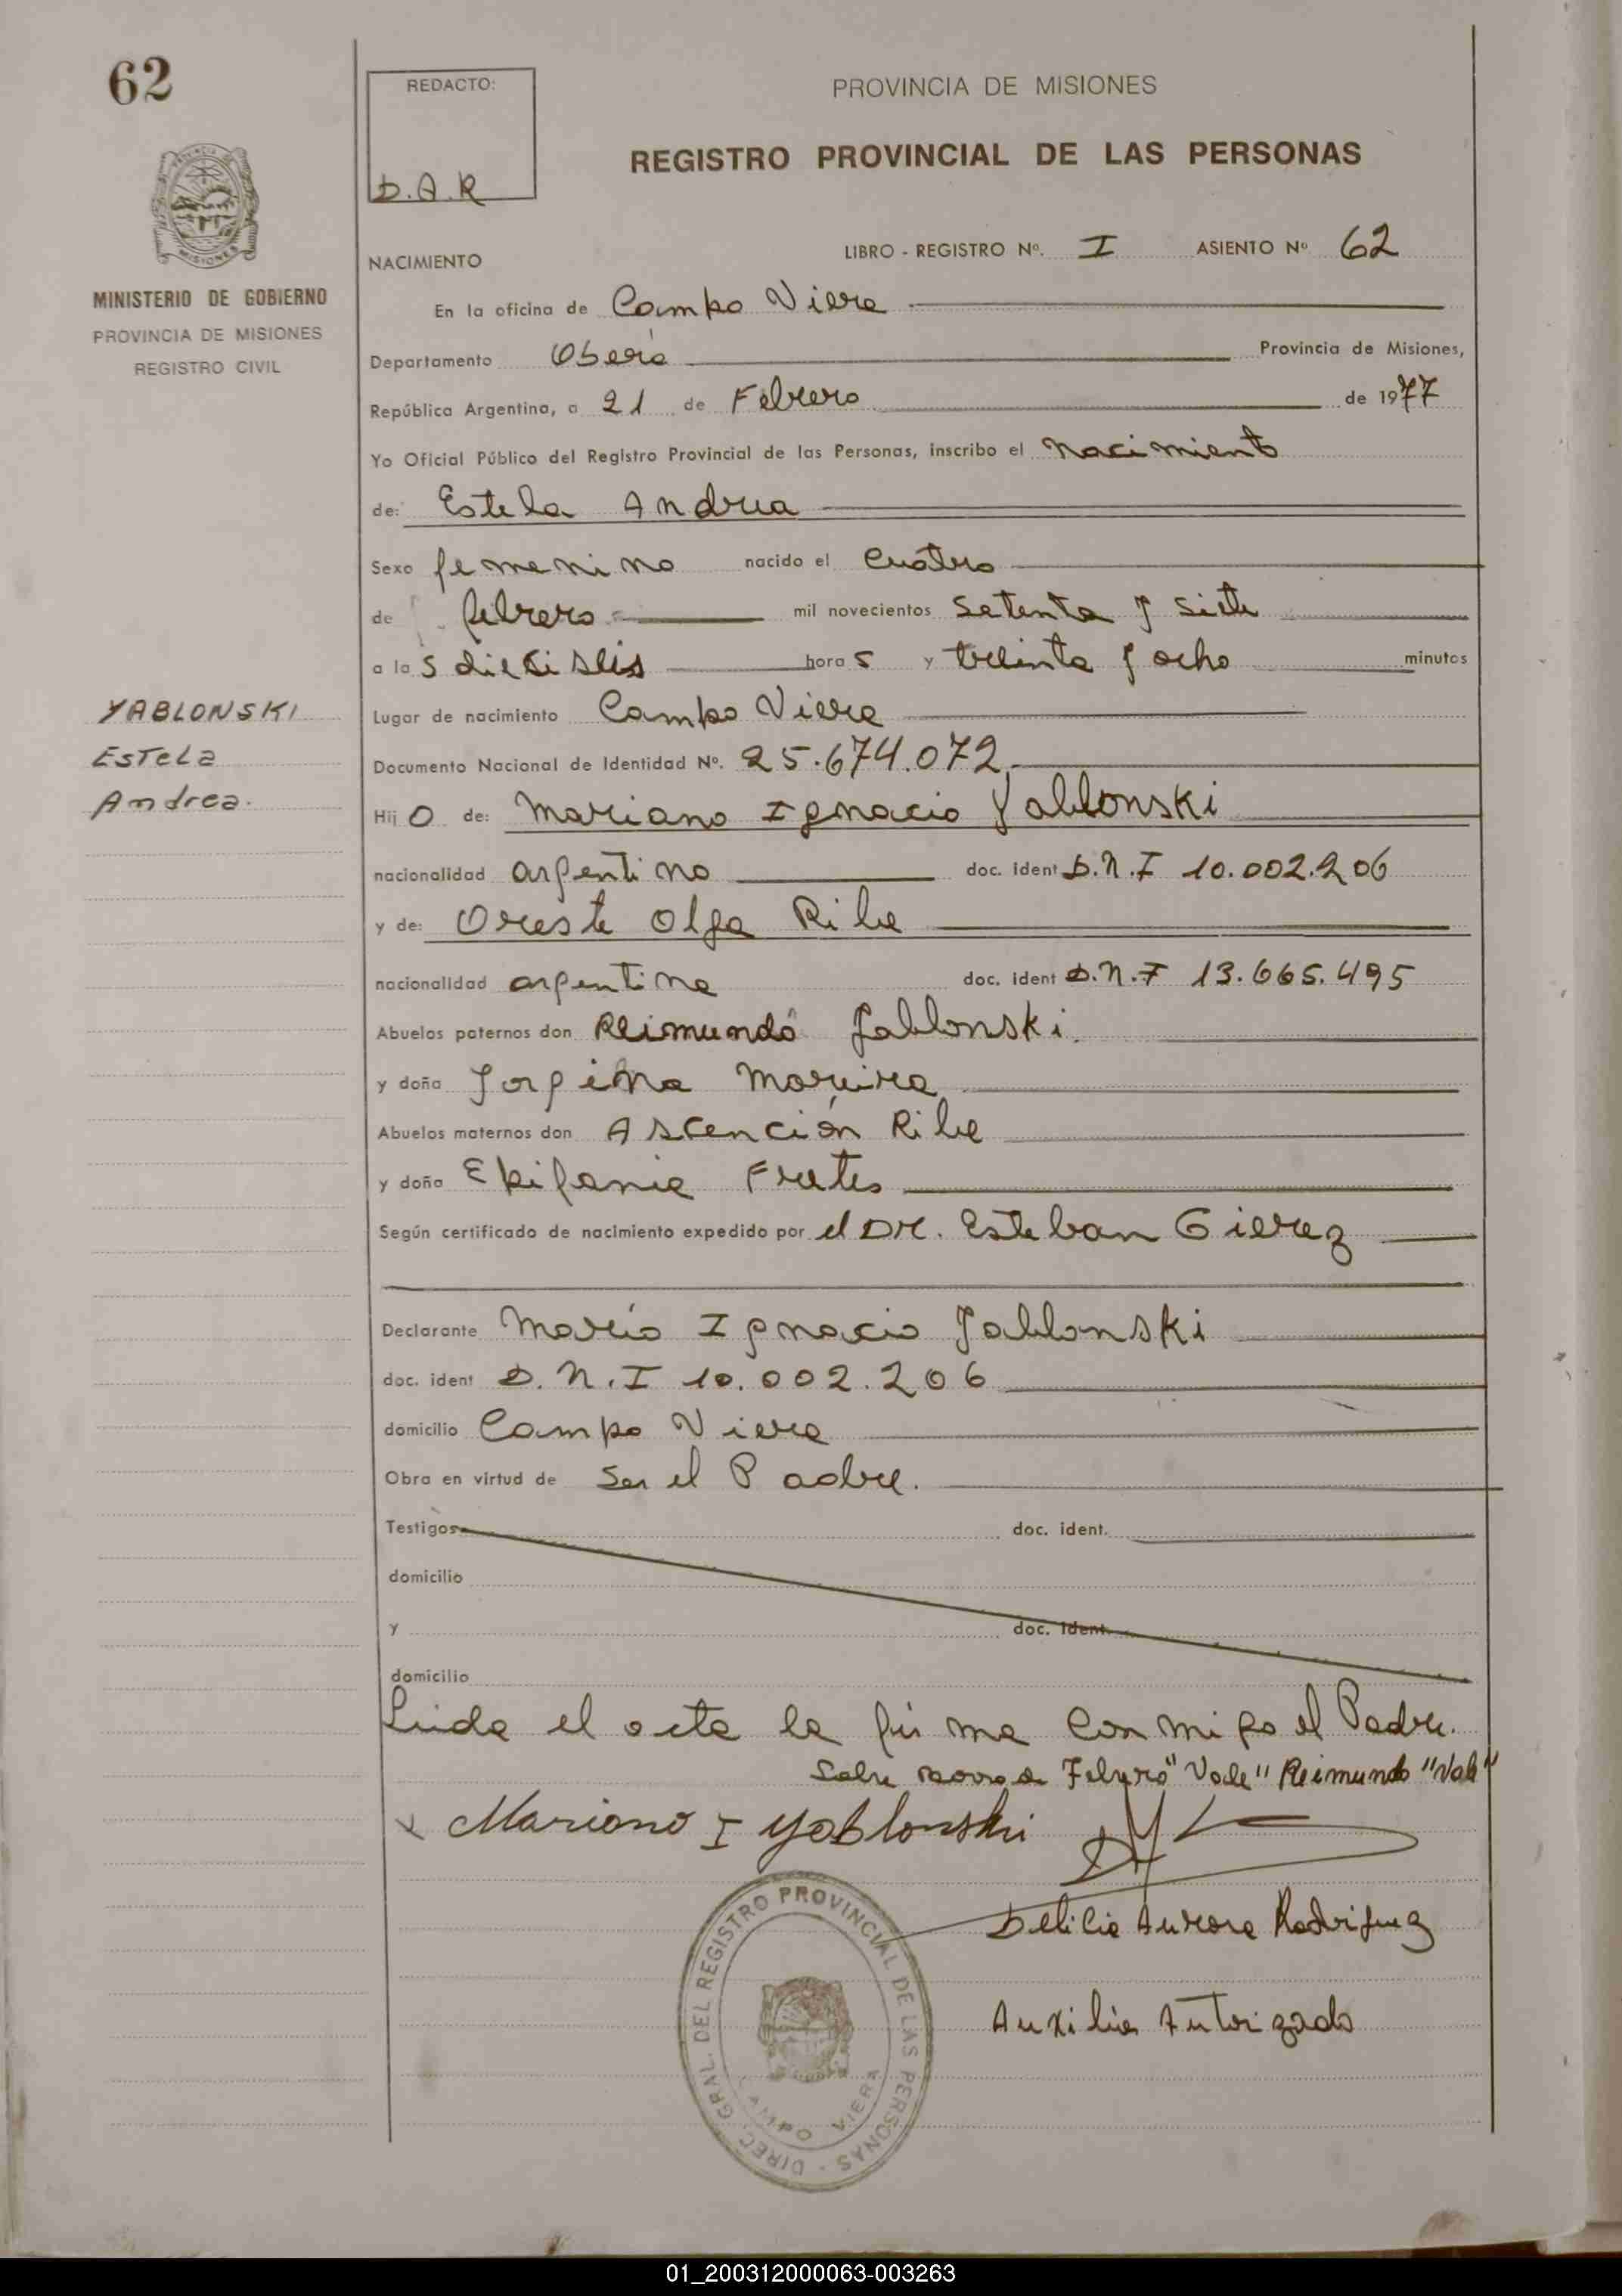 62
REDACTO:
D.A.R
PROVINCIA DE MISIONES
REGISTRO PROVINCIAL DE LAS PERSONAS
MISIONES
MINISTERIO DE GOBIERNO
PROVINCIA DE MISIONES
REGISTRO CIVIL
NACIMIENTO
LIBRO - REGISTRO Nº. I ASIENTO Nº 62
En la oficina de Campo Viera
Departamento Oberá Provincia de Misiones,
República Argentina, a 21 de Febrero de 1977
Yo Oficial Público del Registro Provincial de las Personas, inscribo el Nacimiento
de: Estela Andrea
Sexo femenino nacido el cuatro
de febrero mil novecientos setenta y siete
a las dieciseis horas y treinta y ocho minutos
YABLONSKI
Estela
Andrea.
Lugar de nacimiento Campo Viera
Documento Nacional de Identidad Nº. 25.674.072
Hijo de: Mariano Ignacio Yablonski
nacionalidad argentino doc. ident D.N.I 10.002.206
y de: Oreste Olga Rihe
nacionalidad argentina doc. ident D.N.I 13.665.495
Abuelos paternos don Reimundo Yablonski.
y doña Jorgina Moreira
Abuelos maternos don Ascención Rihe
y doña Epifania Fretes
Según certificado de nacimiento expedido por el Dr. Esteban Gierez
Declarante Mario Ignacio Yablonski
doc. ident D.N.I 10.002.206
domicilio Campo Viera
Obra en virtud de ser el Padre.
Testigos doc. ident.
domicilio
y doc. ident.
domicilio
Leida el acta la firma conmigo el Padre.
Sobre raspado Febrero "Vale" Reimundo "Vale"
x Mariano I Yablonski
Delicia Aurora Rodriguez
Auxiliar Autorizado
DIREC. GRAL. DEL REGISTRO PROVINCIAL DE LAS PERSONAS
CAMPO VIERA
01_200312000063-003263